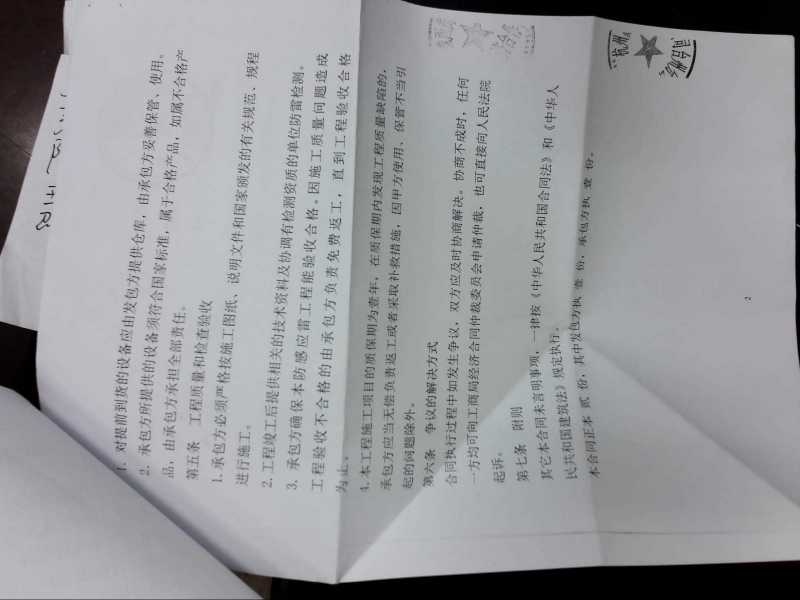 1. 对提前到货的设备应由发包方提供仓库，由承包方妥善保管、使用。
2. 承包方所提供的设备须符合国家标准，属于合格产品，如属不合格产
品，由承包方承担全部责任。
第五条 工程质量和检查验收
1.承包方必须严格按施工图纸、说明文件和国家颁发的有关规范、规程
进行施工。
2.工程竣工后提供相关的技术资料及协调有检测资质的单位防雷检测。
3. 承包方确保本防感应雷工程能验收合格。因施工质量问题造成
工程验收不合格的由承包方负责免费返工，直到工程验收合格
为止。
4.本工程施工项目的质保期为壹年，在质保期内发现工程质量缺陷的，
承包方应当无偿负责返工或者采取补救措施，因甲方使用、保管不当引
起的问题除外。
第六条 争议的解决方式
合同执行过程中如发生争议，双方应及时协商解决。协商不成时，任何
一方均可向工商局经济合同仲裁委员会申请仲裁，也可直接向人民法院
起诉。
第七条 附则
其它本合同未言明事项，一律按《中华人民共和国合同法》和《中华人
民共和国建筑法》规定执行。
本合同正本 贰 份，其中发包方执 壹 份，承包方执 壹 份。
2
杭州